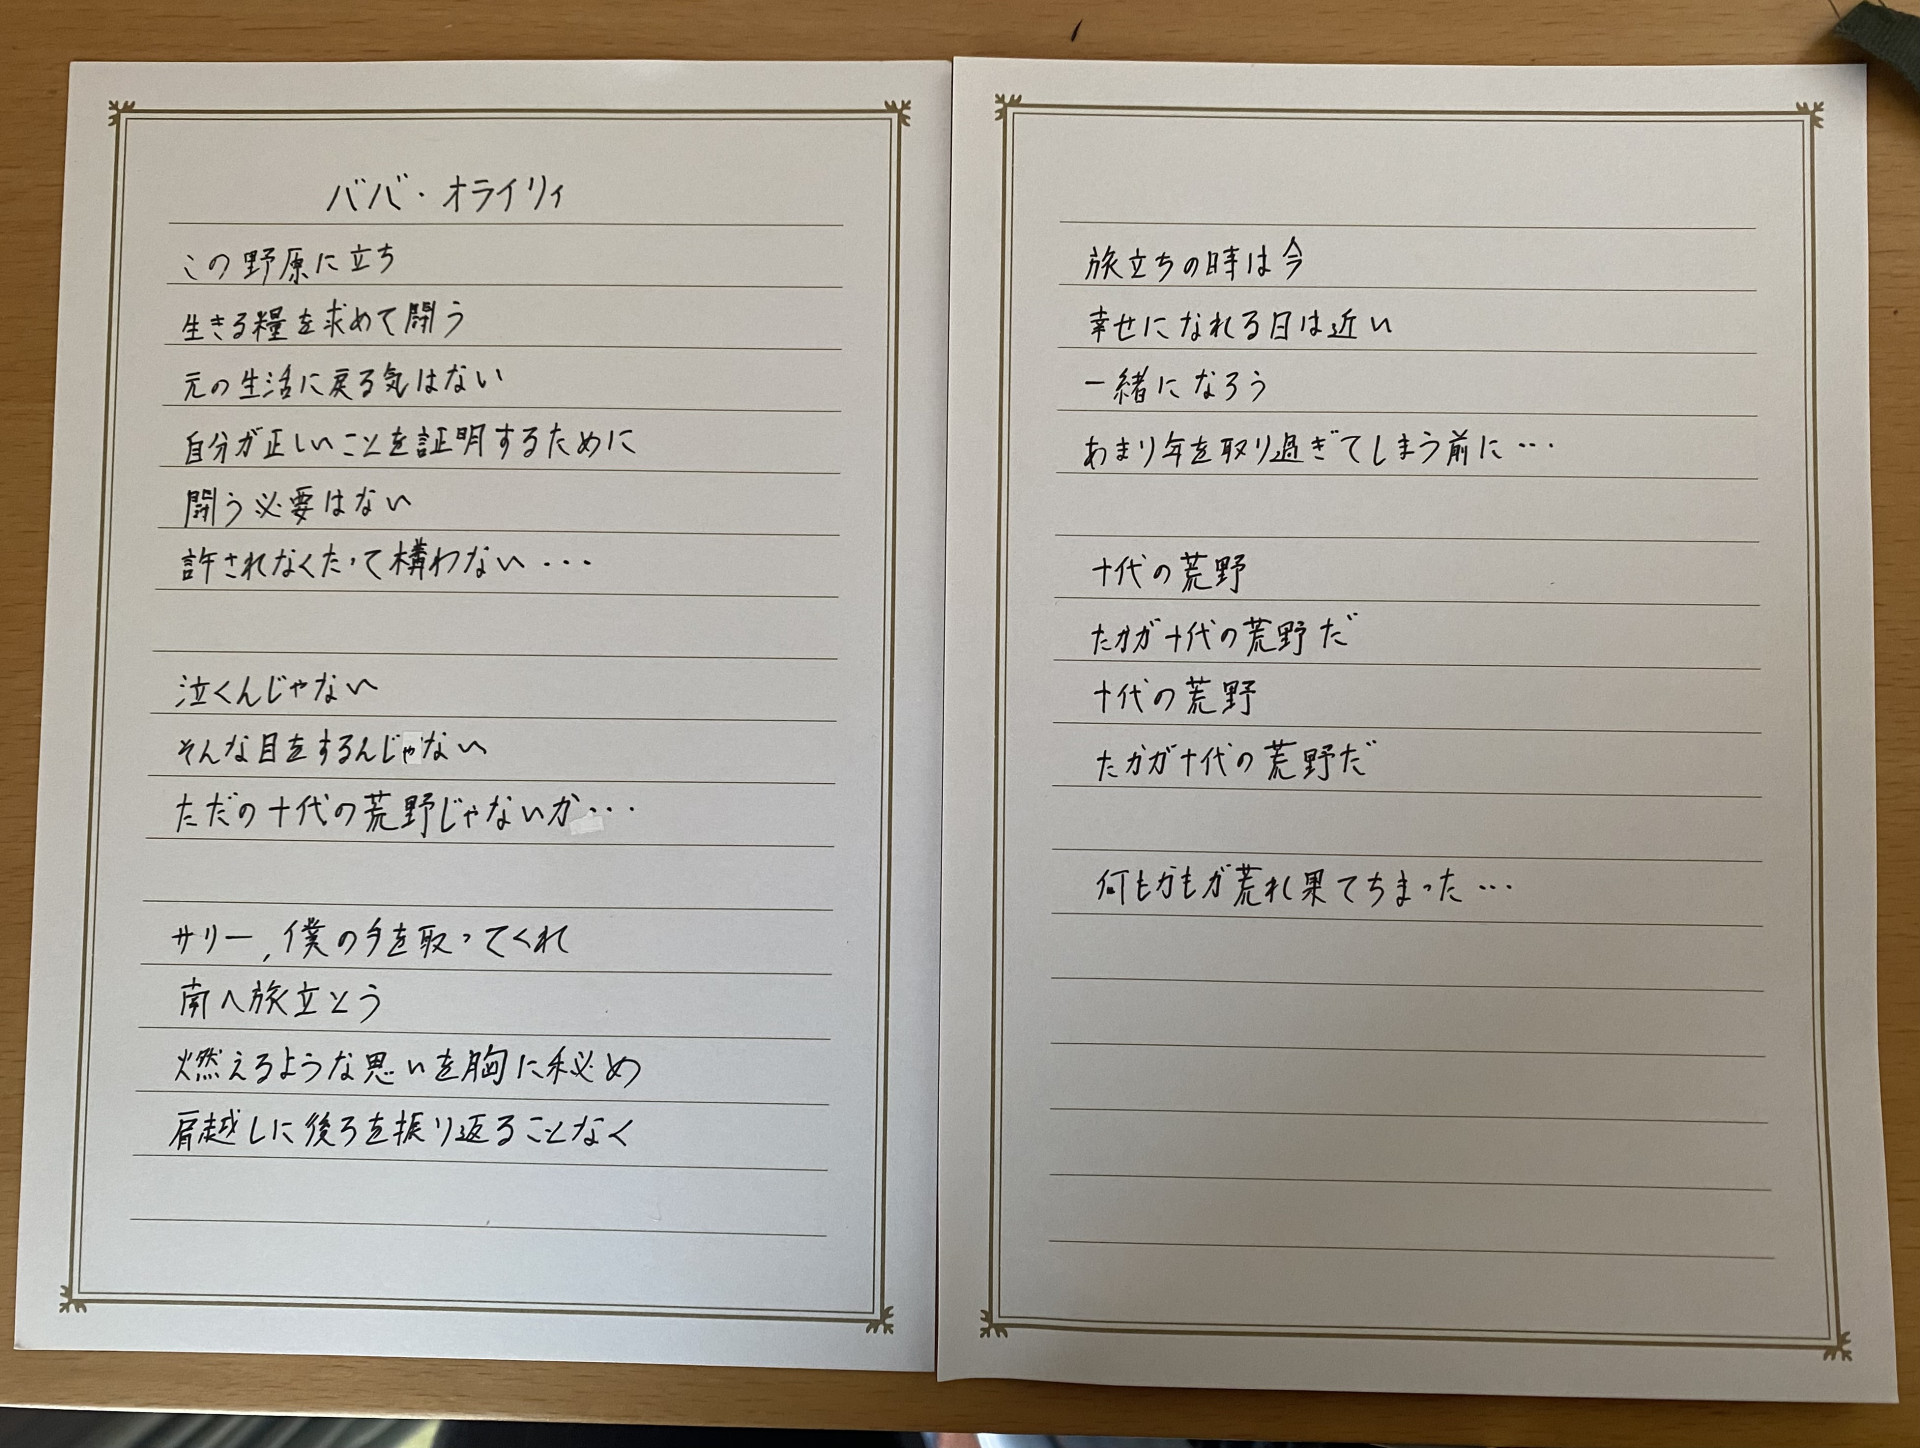 ババ・オライリィ
この野原に立ち
生きる糧を求めて闘う
元の生活に戻る気はない
自分が正しいことを証明するために
闘う必要はない
許されなくたって構わない・・・
泣くんじゃない
そんな目をするんじゃない
ただの十代の荒野じゃないか・・・
サリー,僕の手を取ってくれ
南へ旅立とう
燃えるような思いを胸に秘め
肩越しに後ろを振り返ることなく
旅立ちの時は今
幸せになれる日は近い
一緒になろう
あまり年を取り過ぎてしまう前に・・・
十代の荒野
たかが十代の荒野だ
十代の荒野
たかが十代の荒野だ
何もかもが荒れ果てちまった・・・